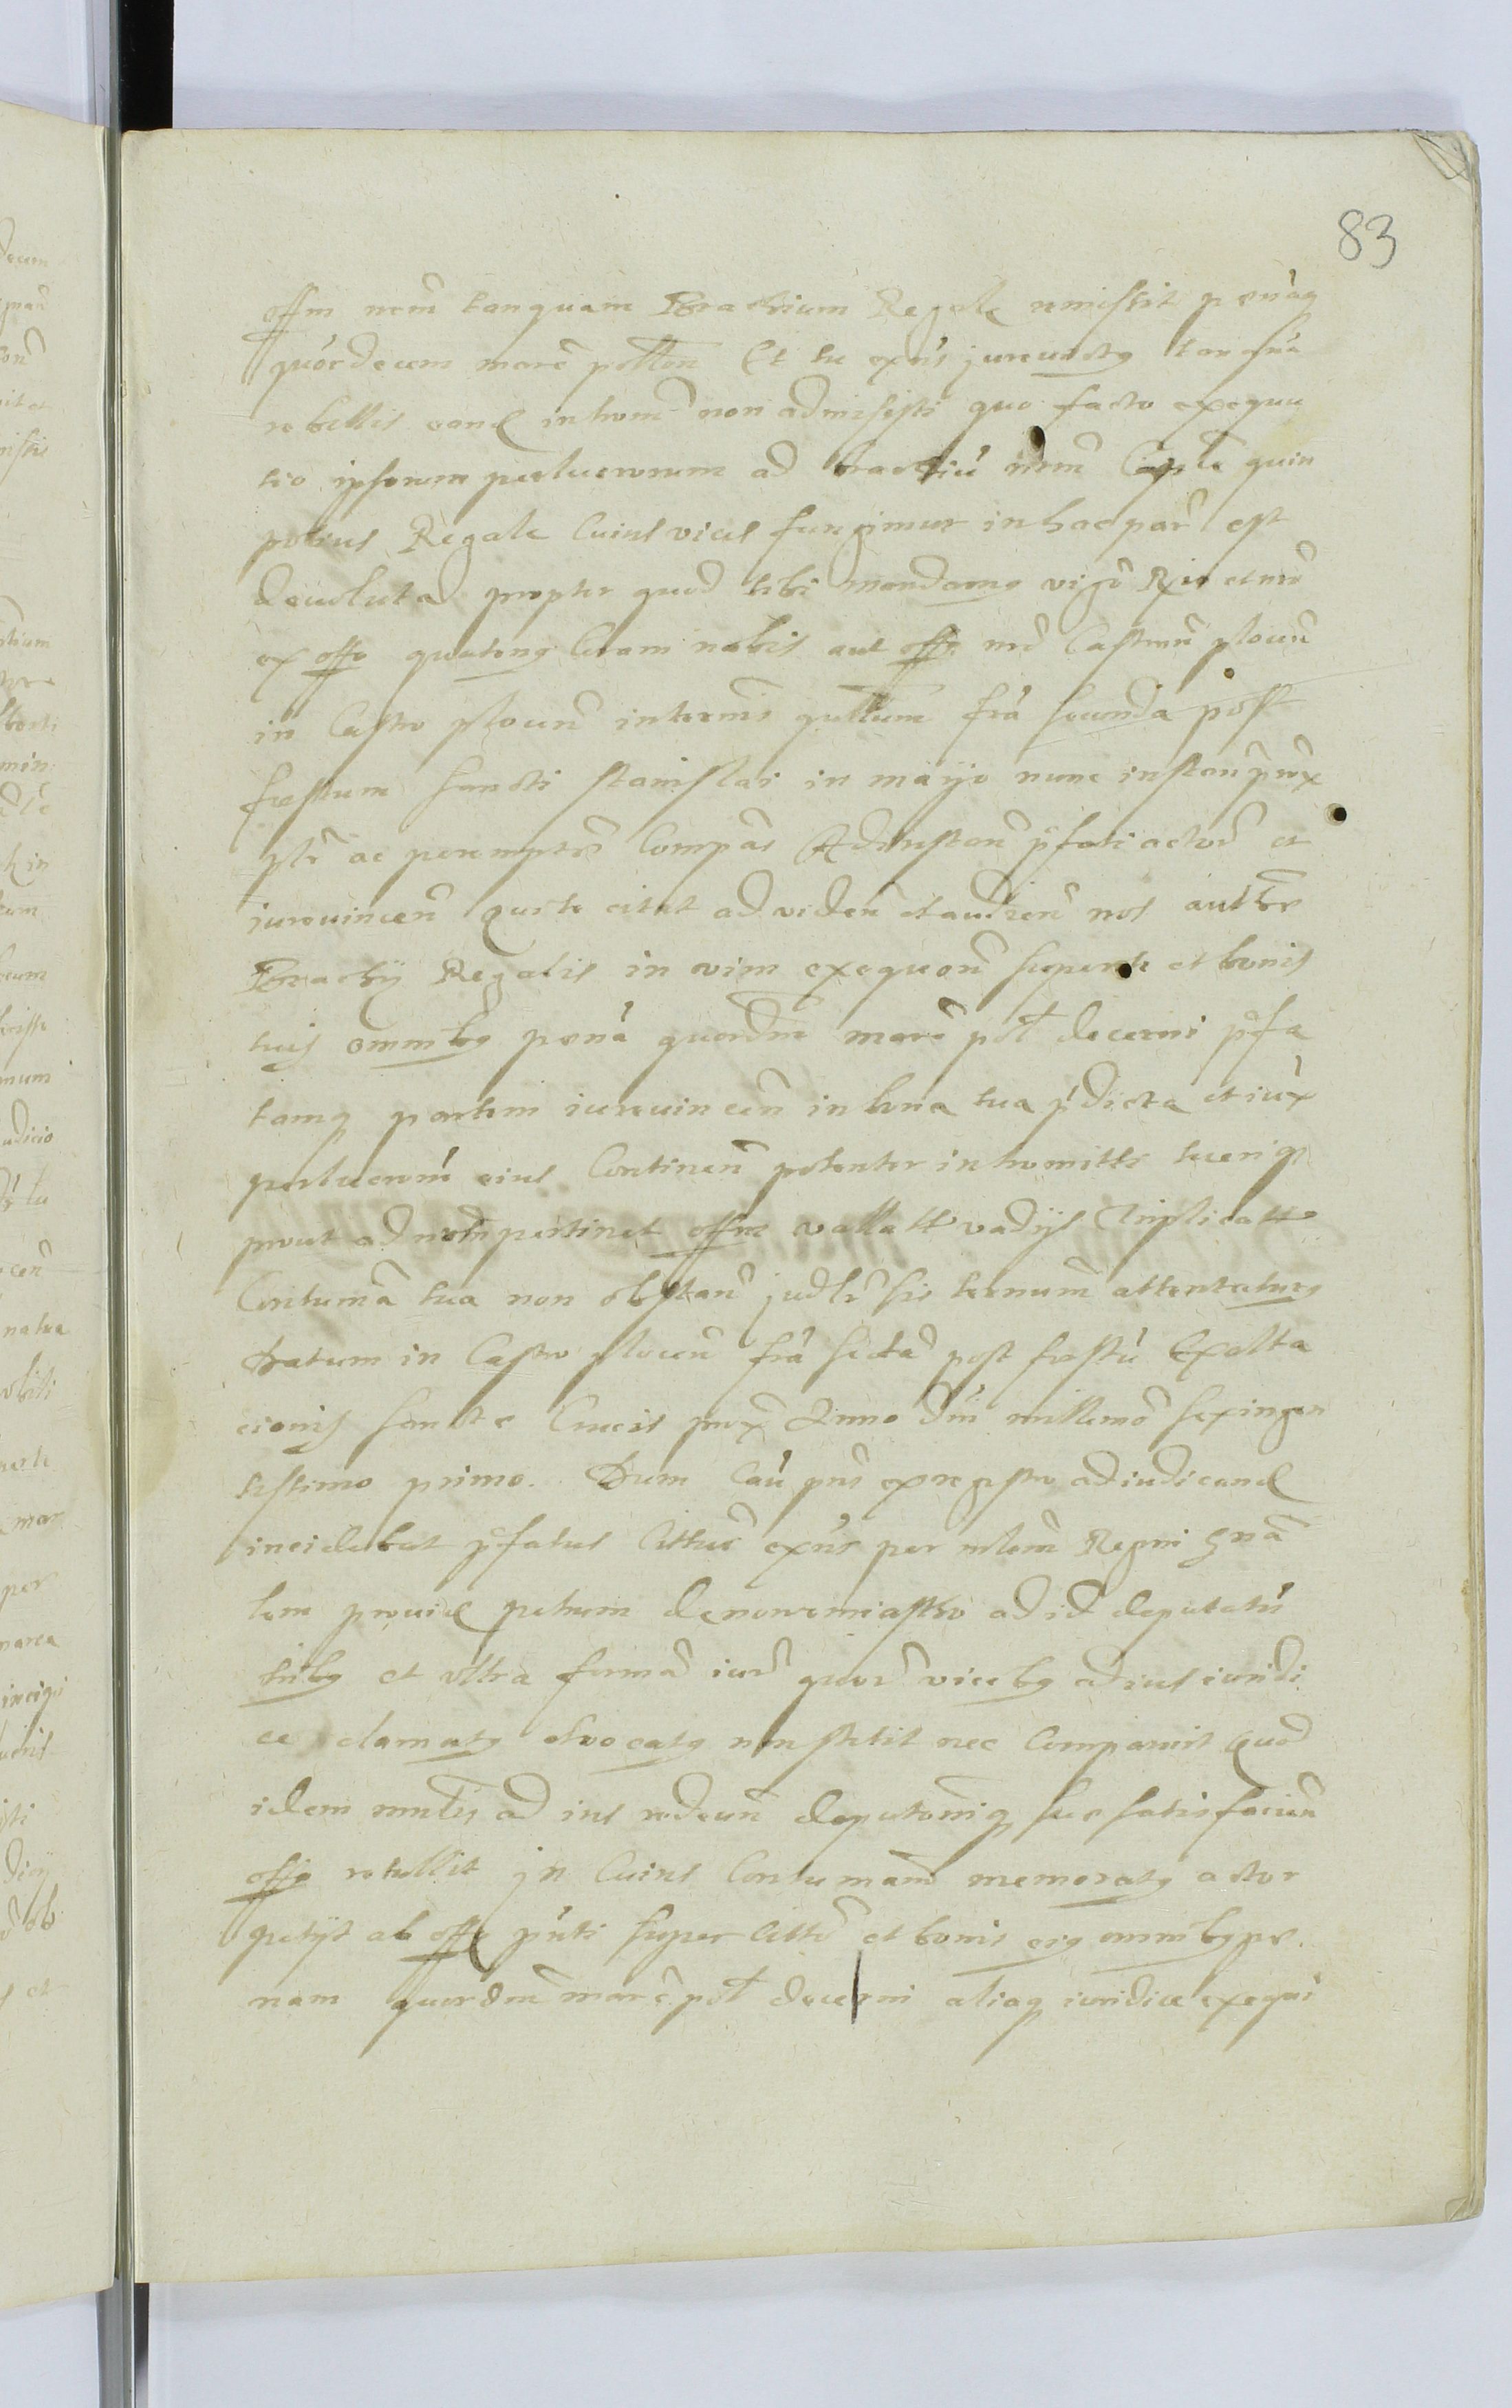 83
offm nrm̃ tanquam Brachium Regale remissit pœnáq
quórdecem marc̃ pollon Et tu exñs jurevictq tan súa
rebellis eand introm̃ non admisisti quo facto exequu
tio ipsorum perlucrorum ad brachiú nrm̃ Capitle quin
potius Regale Cuius vices fungimur in hac par̃ est
deuoluta propter quod tibi mandamq vigẽ Rẽa et nrõ
ex offo quatenq Coram nobis aut offo nrõ Castren̄ plocen̄
in Castro plocen̄ in termis quttum̃ friá secunda post
festum sancti stanislai in maijo nunc instan̄ prox
ptr̃ ac peremptr̃ Compas̃ Ad instan̄ p̃fati actor̃ et
iurevincen̄ qui te citat ad viden̄ et audien̄ nos autttr̃
Brachij Regalis in vim exequon̄ super te et bonis
tuis omnibq pœná quordm̃ marc̃ pol̃ decerni p̃fa
tamq partem iurevincen̄ in bona tua p̃dicta et iux
perlucrum̃ eius Continen̄ potenter intromitti tueriq
prout ad nrm̃ pertinet offm vallatt vadijs triplicatt
Contumã tua non obstan̄ judtr̃ sis ternum̃ attentaturq
Datum in Castro plocen̄ friá sextã post festú Exalta
cionis sanctæ Crucis prox Anno dni millemõ sexingen
tessimo primo. Dum Caú pñs ex regestro ad iudicand
incidebat p̃fatus Cittus̃ exñs per mlem̃ Regni gnã
lem prouid petrum de noromiastko ad id deputatú
tribq et vltra formã iur̃ quor̃ vicebq ad ius iuridi
ce clamatq et vocatq non stetit nec Comparuit quod
idem mnlis̃ ad ius redeun̄ deputoniq̃ suæ satisfacien̄
offo retullit jn Cuius Contumam̃ memoratq actor
petijt ab offo p̃nti super Cittõ et bonis eiq omnibq pœ
nam quordm̃ marc̃ pol̃ decerni aliaq iuridice exequi